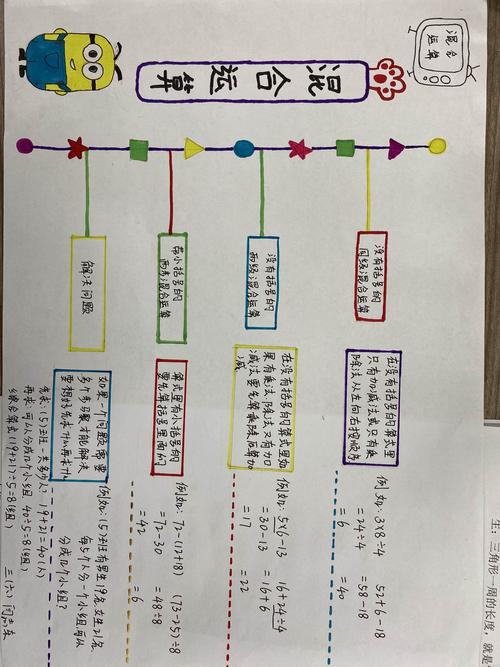 混合
运算
混合运算
没有括号的
同级混合运算
在没有括号的算式里
只有加减法或只有乘
除法从左向右按顺序
例如: 3×8÷4
=24÷4
=6
52+6-18
=58-18
=40
没有括号的
两级混合运算
在没有括号的算式里如
果有乘法、除法又有加
减法要先算乘除再算加
减
例如: 5×6-13
=30-13
=17
16+24÷4
=16+6
=22
带小括号的
两步混合运算
算式里有小括号的
要先算括号里面的
例如: 72-(12+18)
=72-30
=42
(73-25)÷8
=48÷8
=6
解决问题
如果一个问题需要
多个步骤才能解决
要想好先求什么再求什么
例如: (5)班有男生19名,女生21名,
每5个人分一个小组,可以
分成几个小组?
先求:(5)班一共多少人? 19+21=40(人)
再求:可以分成几个小组 40÷5=8(组)
综合算式:(19+21)÷5=8(组)
三(六)
生:三角形一周的长度,就是